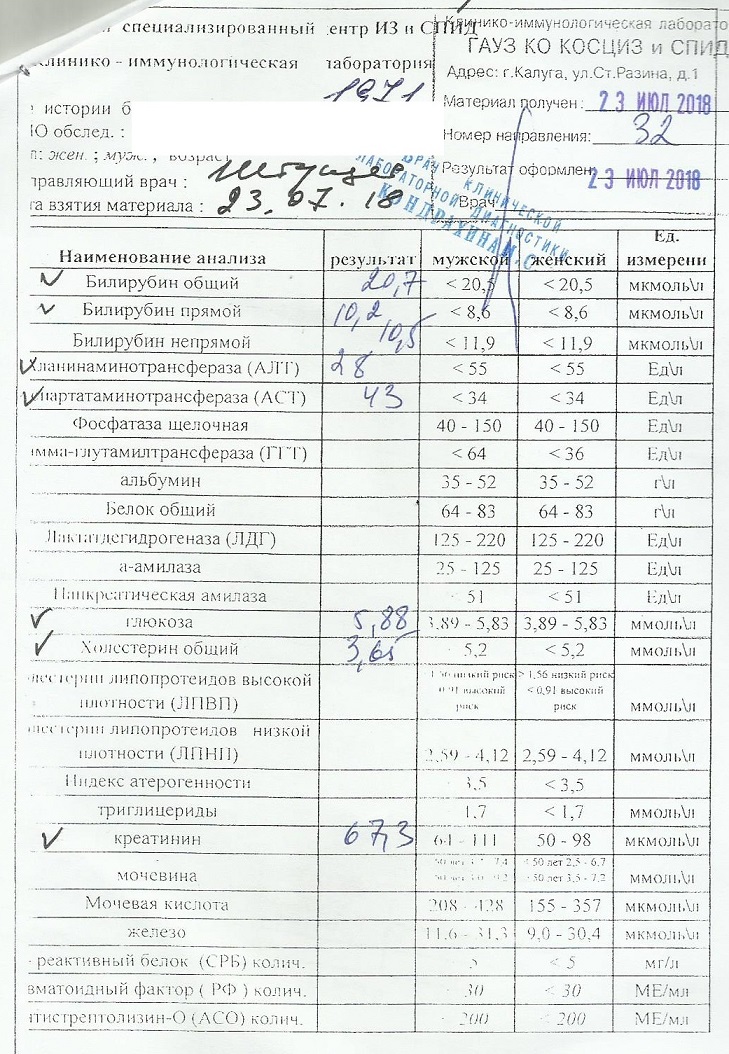 специализированный ентр ИЗ и СПИД
Клинико-иммунологическая лаборато
ГАУЗ КО КОСЦИЗ и СПИД
клинико - иммунологическая лаборатория
Адрес: г.Калуга, ул.Ст.Разина, д.1
1971
Материал получен: 23 ИЮЛ 2018
истории б
Номер направления: 32
Ю обслед. :
л: жен. ; муж. , возраст
Результат оформлен: 23 ИЮЛ 2018
правляющий врач :
Врач
та взятия материала : 23.07.18
ВРАЧ КЛИНИЧЕСКОЙ
ЛАБОРАТОРНОЙ ДИАГНОСТИКИ
КОНДРАХИНА И.С.
Наименование анализа результат мужской женский Ед. измерени
Билирубин общий 20,7 < 20,5 < 20,5 мкмоль\л
Билирубин прямой 10,2 < 8,6 < 8,6 мкмоль\л
Билирубин непрямой 10,5 < 11,9 < 11,9 мкмоль\л
ланинаминотрансфераза (АЛТ) 28 < 55 < 55 Ед\л
партатаминотрансфераза (АСТ) 43 < 34 < 34 Ед\л
Фосфатаза щелочная 40 - 150 40 - 150 Ед\л
мма-глутамилтрансфераза (ГГТ) < 64 < 36 Ед\л
альбумин 35 - 52 35 - 52 г\л
Белок общий 64 - 83 64 - 83 г\л
Лактатдегидрогеназа (ЛДГ) 125 - 220 125 - 220 Ед\л
а-амилаза 25 - 125 25 - 125 Ед\л
Панкреатическая амилаза < 51 < 51 Ед\л
глюкоза 5,88 3,89 - 5,83 3,89 - 5,83 ммоль\л
Холестерин общий 3,65 5,2 < 5,2 ммоль\л
лестерин липопротеидов высокой
плотности (ЛПВП) 1,56 низкий риск 0,91 высокий риск > 1,56 низкий риск < 0,91 высокий риск ммоль\л
лестерин липопротеидов низкой
плотности (ЛПНП) 2,59 - 4,12 2,59 - 4,12 ммоль\л
Индекс атерогенности 3,5 < 3,5
триглицериды 1,7 < 1,7 ммоль\л
креатинин 67,3 64 - 111 50 - 98 мкмоль\л
мочевина < 50 лет 2,5 - 6,7 > 50 лет 3,5 - 7,2 ммоль\л
Мочевая кислота 208 - 428 155 - 357 мкмоль\л
железо 11,6 - 31,3 9,0 - 30,4 мкмоль\л
- реактивный белок (СРБ) колич. 5 < 5 мг/л
вматоидный фактор ( РФ ) колич. 30 < 30 МЕ/мл
тистрептолизин-О (АСО) колич. 200 < 200 МЕ/мл